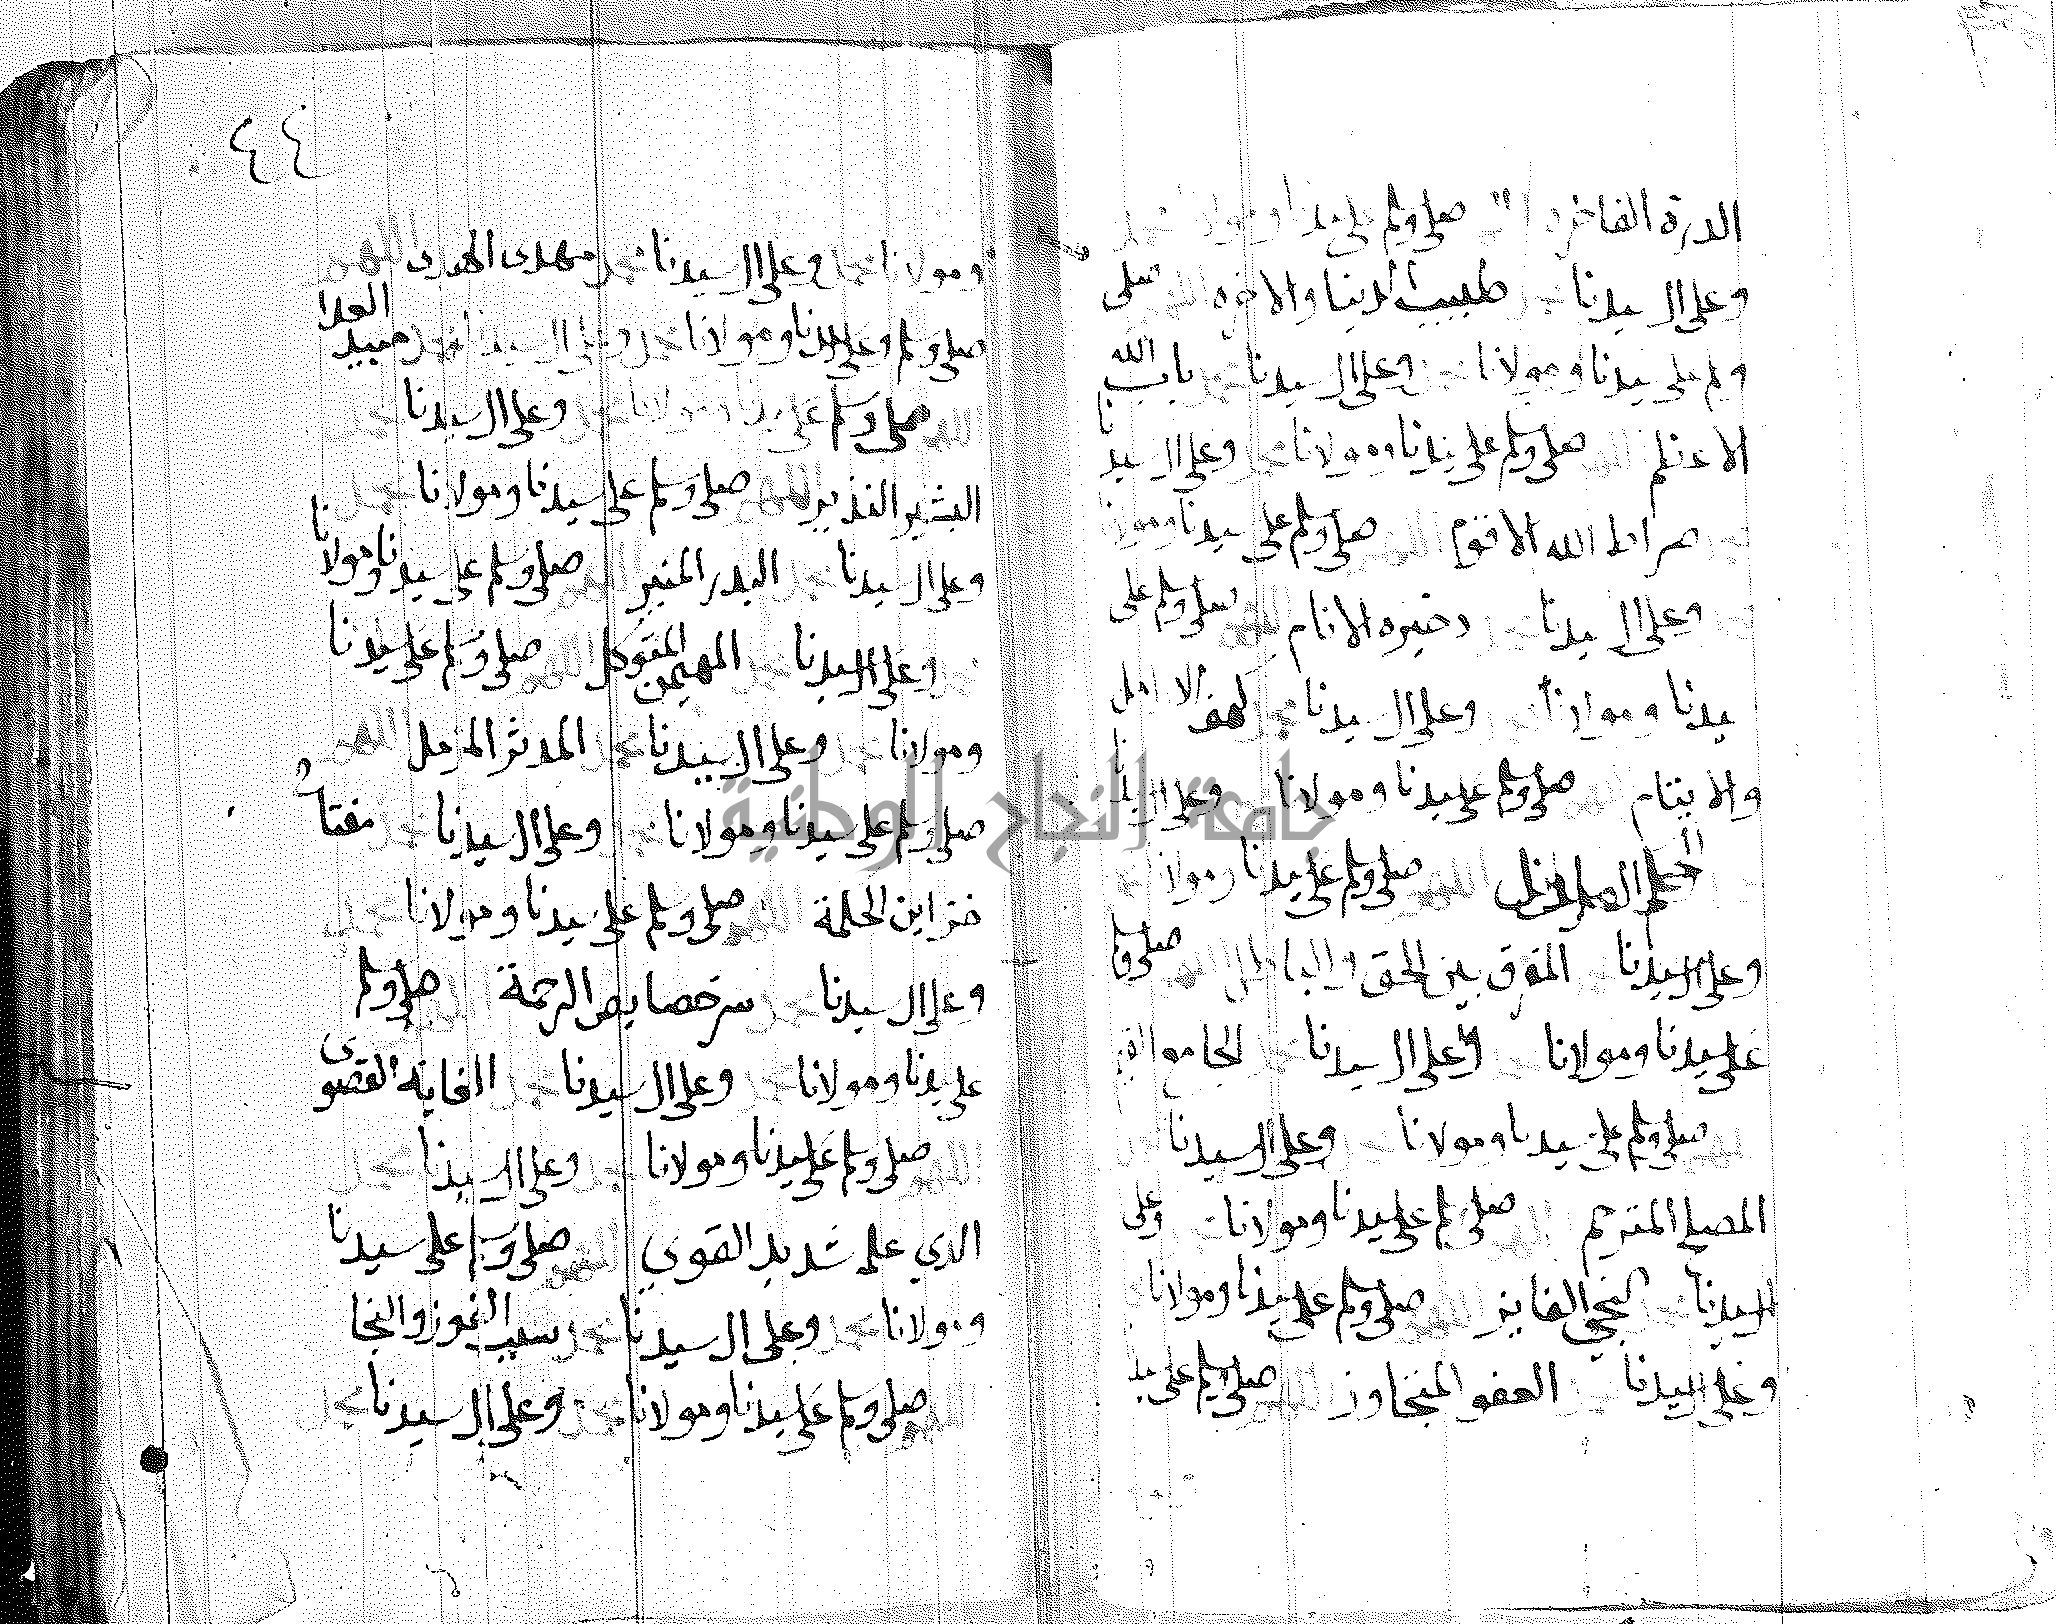 الدرة الفاخره صلي وسلم علي سيدنا ومولانا محمد
وعلي ال سيدنا محمد طبيب الدنيا والاخره اللهم صلي
وسلم علي سيدنا ومولانا محمد وعلي ال سيدنا محمد باب الله
الاعظم اللهم صلي وسلم علي سيدنا ومولانا محمد وعلي ال سيدنا
محمد صراط الله الاقوم اللهم صلي وسلم علي سيدنا ومولانا
محمد وعلي ال سيدنا محمد دخيره الانام اللهم صلي وسلم علي
سيدنا ومولانا محمد وعلي ال سيدنا محمد كهف الارامل
والايتام اللهم صلي وسلم علي سيدنا ومولانا محمد وعلي ال سيدنا
اللهم صلي وسلم علي سيدنا ومولانا محمد
وعلي ال سيدنا محمد المفرق بين الحق والباطل اللهم صلي وسلم
علي سيدنا ومولانا محمد وعلي ال سيدنا محمد الجامع
اللهم صلي وسلم علي سيدنا ومولانا محمد وعلي ال سيدنا محمد
المصلي المترحم اللهم صلي وسلم علي سيدنا ومولانا محمد وعلي
ال سيدنا محمد المنجي الفايز اللهم صلي وسلم علي سيدنا ومولانا محمد
وعلي ال سيدنا محمد العفو المتجاوز اللهم صلي وسلم علي سيد
٤٤
ومولانا محمد وعلي ال سيدنا محمد مهدي الهدى اللهم
صلي وسلم وعلي سيدنا ومولانا محمد وعلي ال سيدنا محمد مبيد العدا
اللهم صلي وسلم علي سيدنا ومولانا محمد وعلي ال سيدنا محمد
البشير النذير اللهم صلي وسلم علي سيدنا ومولانا محمد
وعلي ال سيدنا محمد البدر المنير اللهم صلي وسلم علي سيدنا ومولانا
محمد وعلي ال سيدنا محمد المهيمن المتوكل اللهم صلي وسلم علي سيدنا
ومولانا محمد وعلي ال سيدنا محمد المدثر المزمل اللهم
صلي وسلم علي سيدنا ومولانا محمد وعلي ال سيدنا محمد مفتاح
خزاين الحكمة اللهم صلي وسلم علي سيدنا ومولانا محمد
وعلي ال سيدنا محمد سر خصايص الرحمة اللهم صلي وسلم
علي سيدنا ومولانا محمد وعلي ال سيدنا محمد الغايه القصوى
اللهم صلي وسلم علي سيدنا ومولانا محمد وعلي ال سيدنا محمد
الذي علمه شديد القوي اللهم صلي وسلم علي سيدنا
ومولانا محمد وعلي ال سيدنا محمد سبب الفوز والنجا
اللهم صلي وسلم علي سيدنا ومولانا محمد وعلي ال سيدنا محمد
جامعة النجاح الوطنية